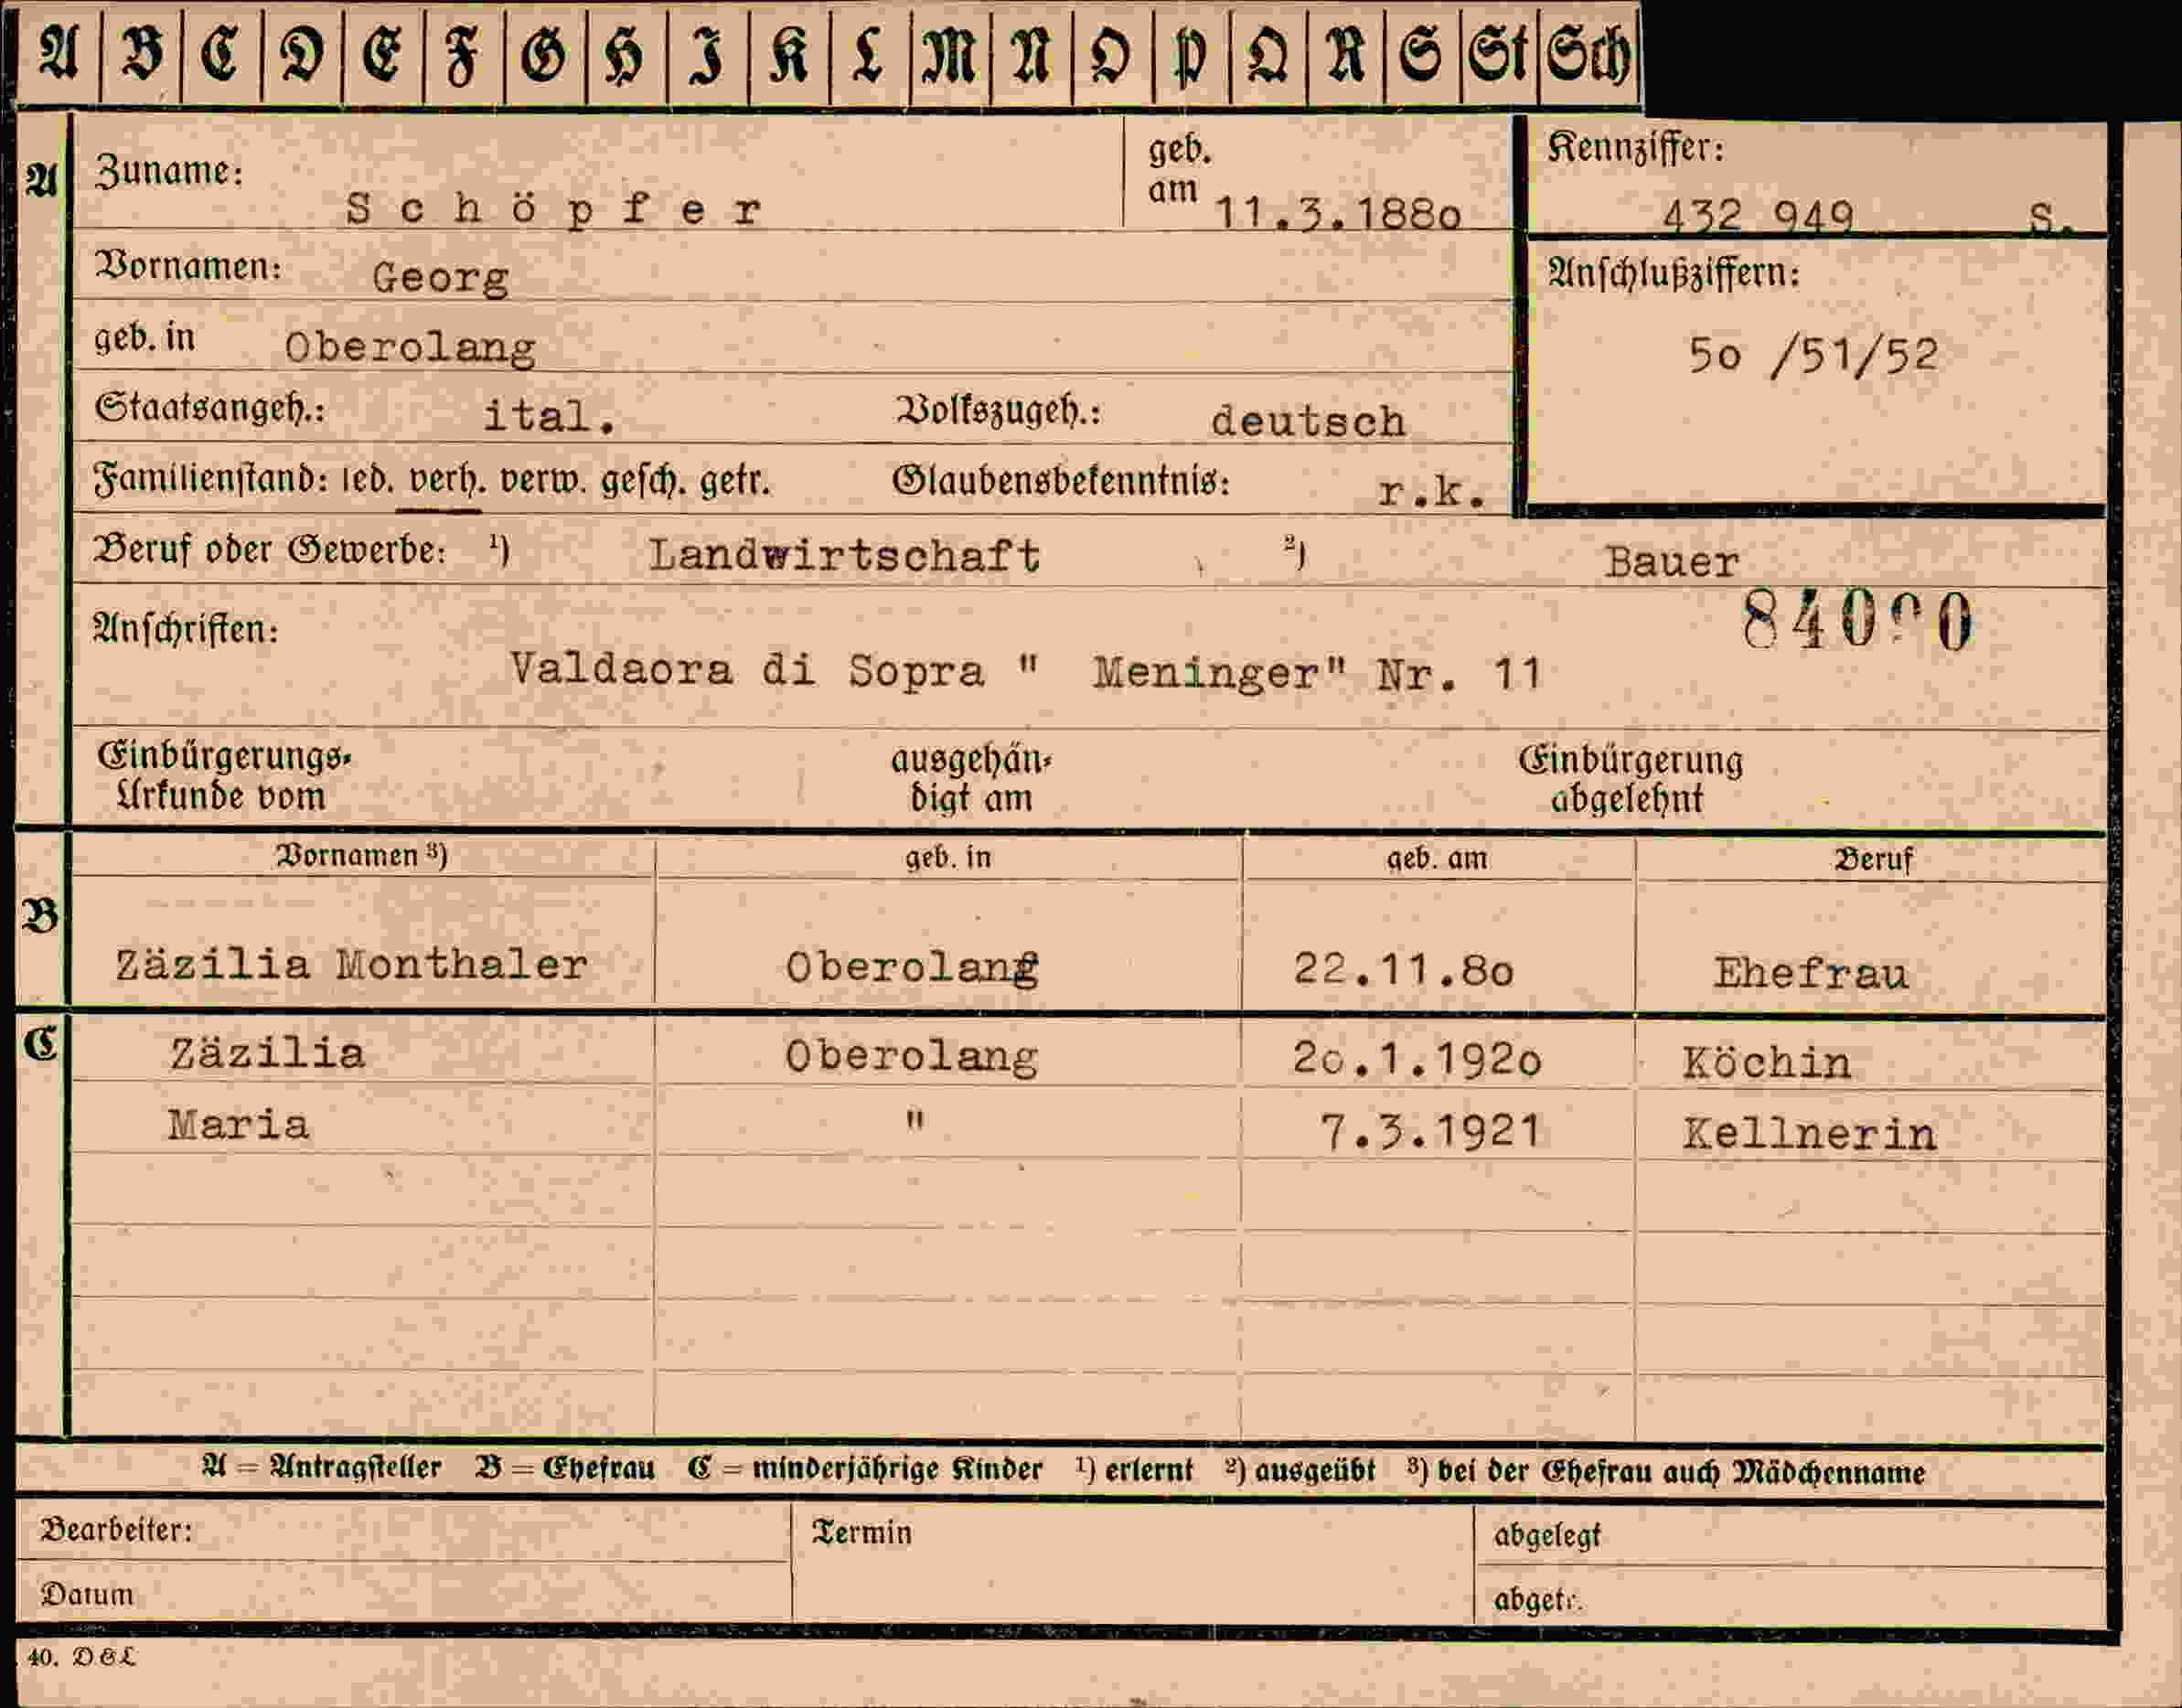 A B C D E F G H I K L M N O P Q R S St Sch
A Zuname: Schöpfer geb. am 11.3.1880 Kennziffer: 432 949 S.
Vornamen: Georg Anschlußziffern:
geb. in Oberolang 50 /51/52
Staatsangeh.: ital. Volkszugeh.: deutsch
Familienstand: led. verh. verw. gesch. getr. Glaubensbekenntnis: r.k.
Beruf oder Gewerbe: ¹) Landwirtschaft ²) Bauer
Anschriften:
Valdaora di Sopra " Meninger" Nr. 11
Einbürgerungs- ausgehän- Einbürgerung
Urkunde vom digt am abgelehnt
Vornamen ³) geb. in geb. am Beruf
B
Zäzilia Monthaler Oberolang 22.11.80 Ehefrau
C Zäzilia Oberolang 20.1.1920 Köchin
Maria " 7.3.1921 Kellnerin
A = Antragsteller B = Ehefrau C = minderjährige Kinder ¹) erlernt ²) ausgeübt ³) bei der Ehefrau auch Mädchenname
Bearbeiter: Termin abgelegt
Datum abgetr.
40. D&L